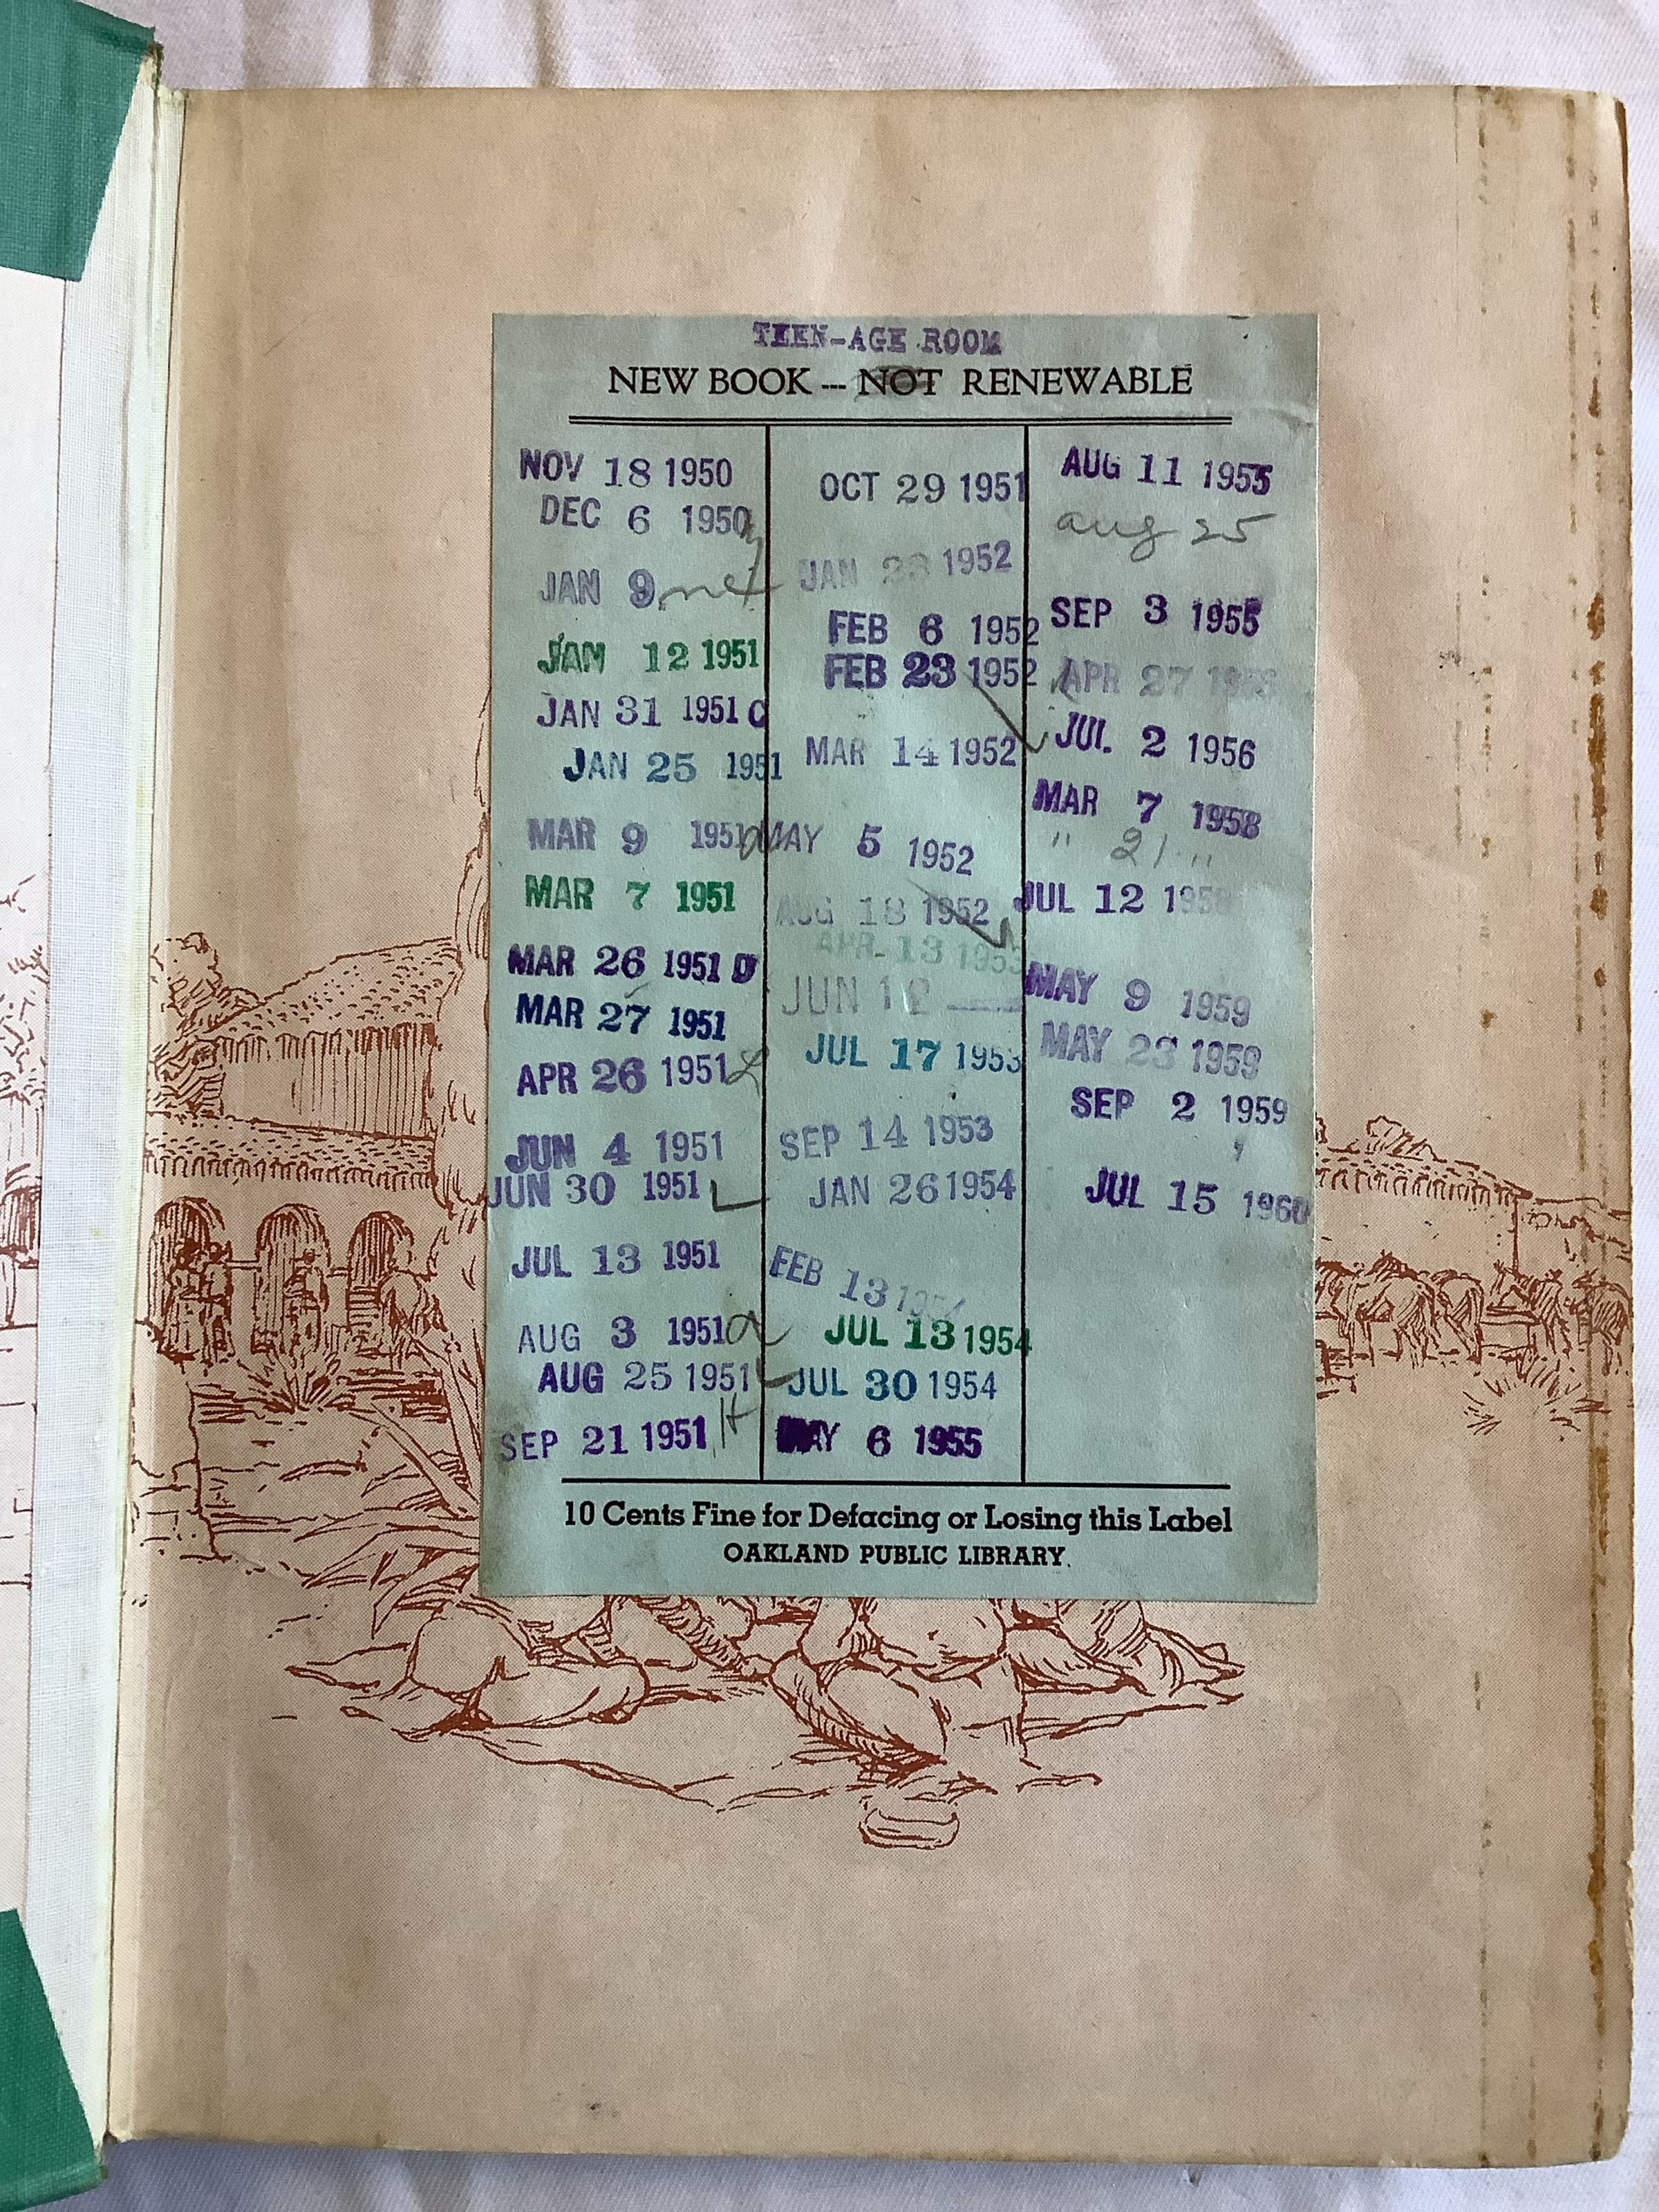 TEEN-AGE ROOM
NEW BOOK --- NOT RENEWABLE
NOV 18 1950
DEC 6 1950
JAN 9
JAN 12 1951
JAN 31 1951 C
JAN 25 1951
MAR 9 1951
MAR 7 1951
MAR 26 1951 D
MAR 27 1951
APR 26 1951
JUN 4 1951
JUN 30 1951
JUL 13 1951
AUG 3 1951
AUG 25 1951
SEP 21 1951 H
OCT 29 1951
JAN 1952
FEB 6 1952
FEB 23 1952
MAR 14 1952
MAY 5 1952
AUG 18 1952
APR 13 1953
JUN
JUL 17 1953
SEP 14 1953
JAN 26 1954
FEB 13 1954
JUL 13 1954
JUL 30 1954
MAY 6 1955
AUG 11 1955
aug 25
SEP 3 1955
APR 27
JUL 2 1956
MAR 7 1958
" 21 "
JUL 12
MAY 9 1959
MAY 23 1959
SEP 2 1959
JUL 15 1960
10 Cents Fine for Defacing or Losing this Label
OAKLAND PUBLIC LIBRARY.